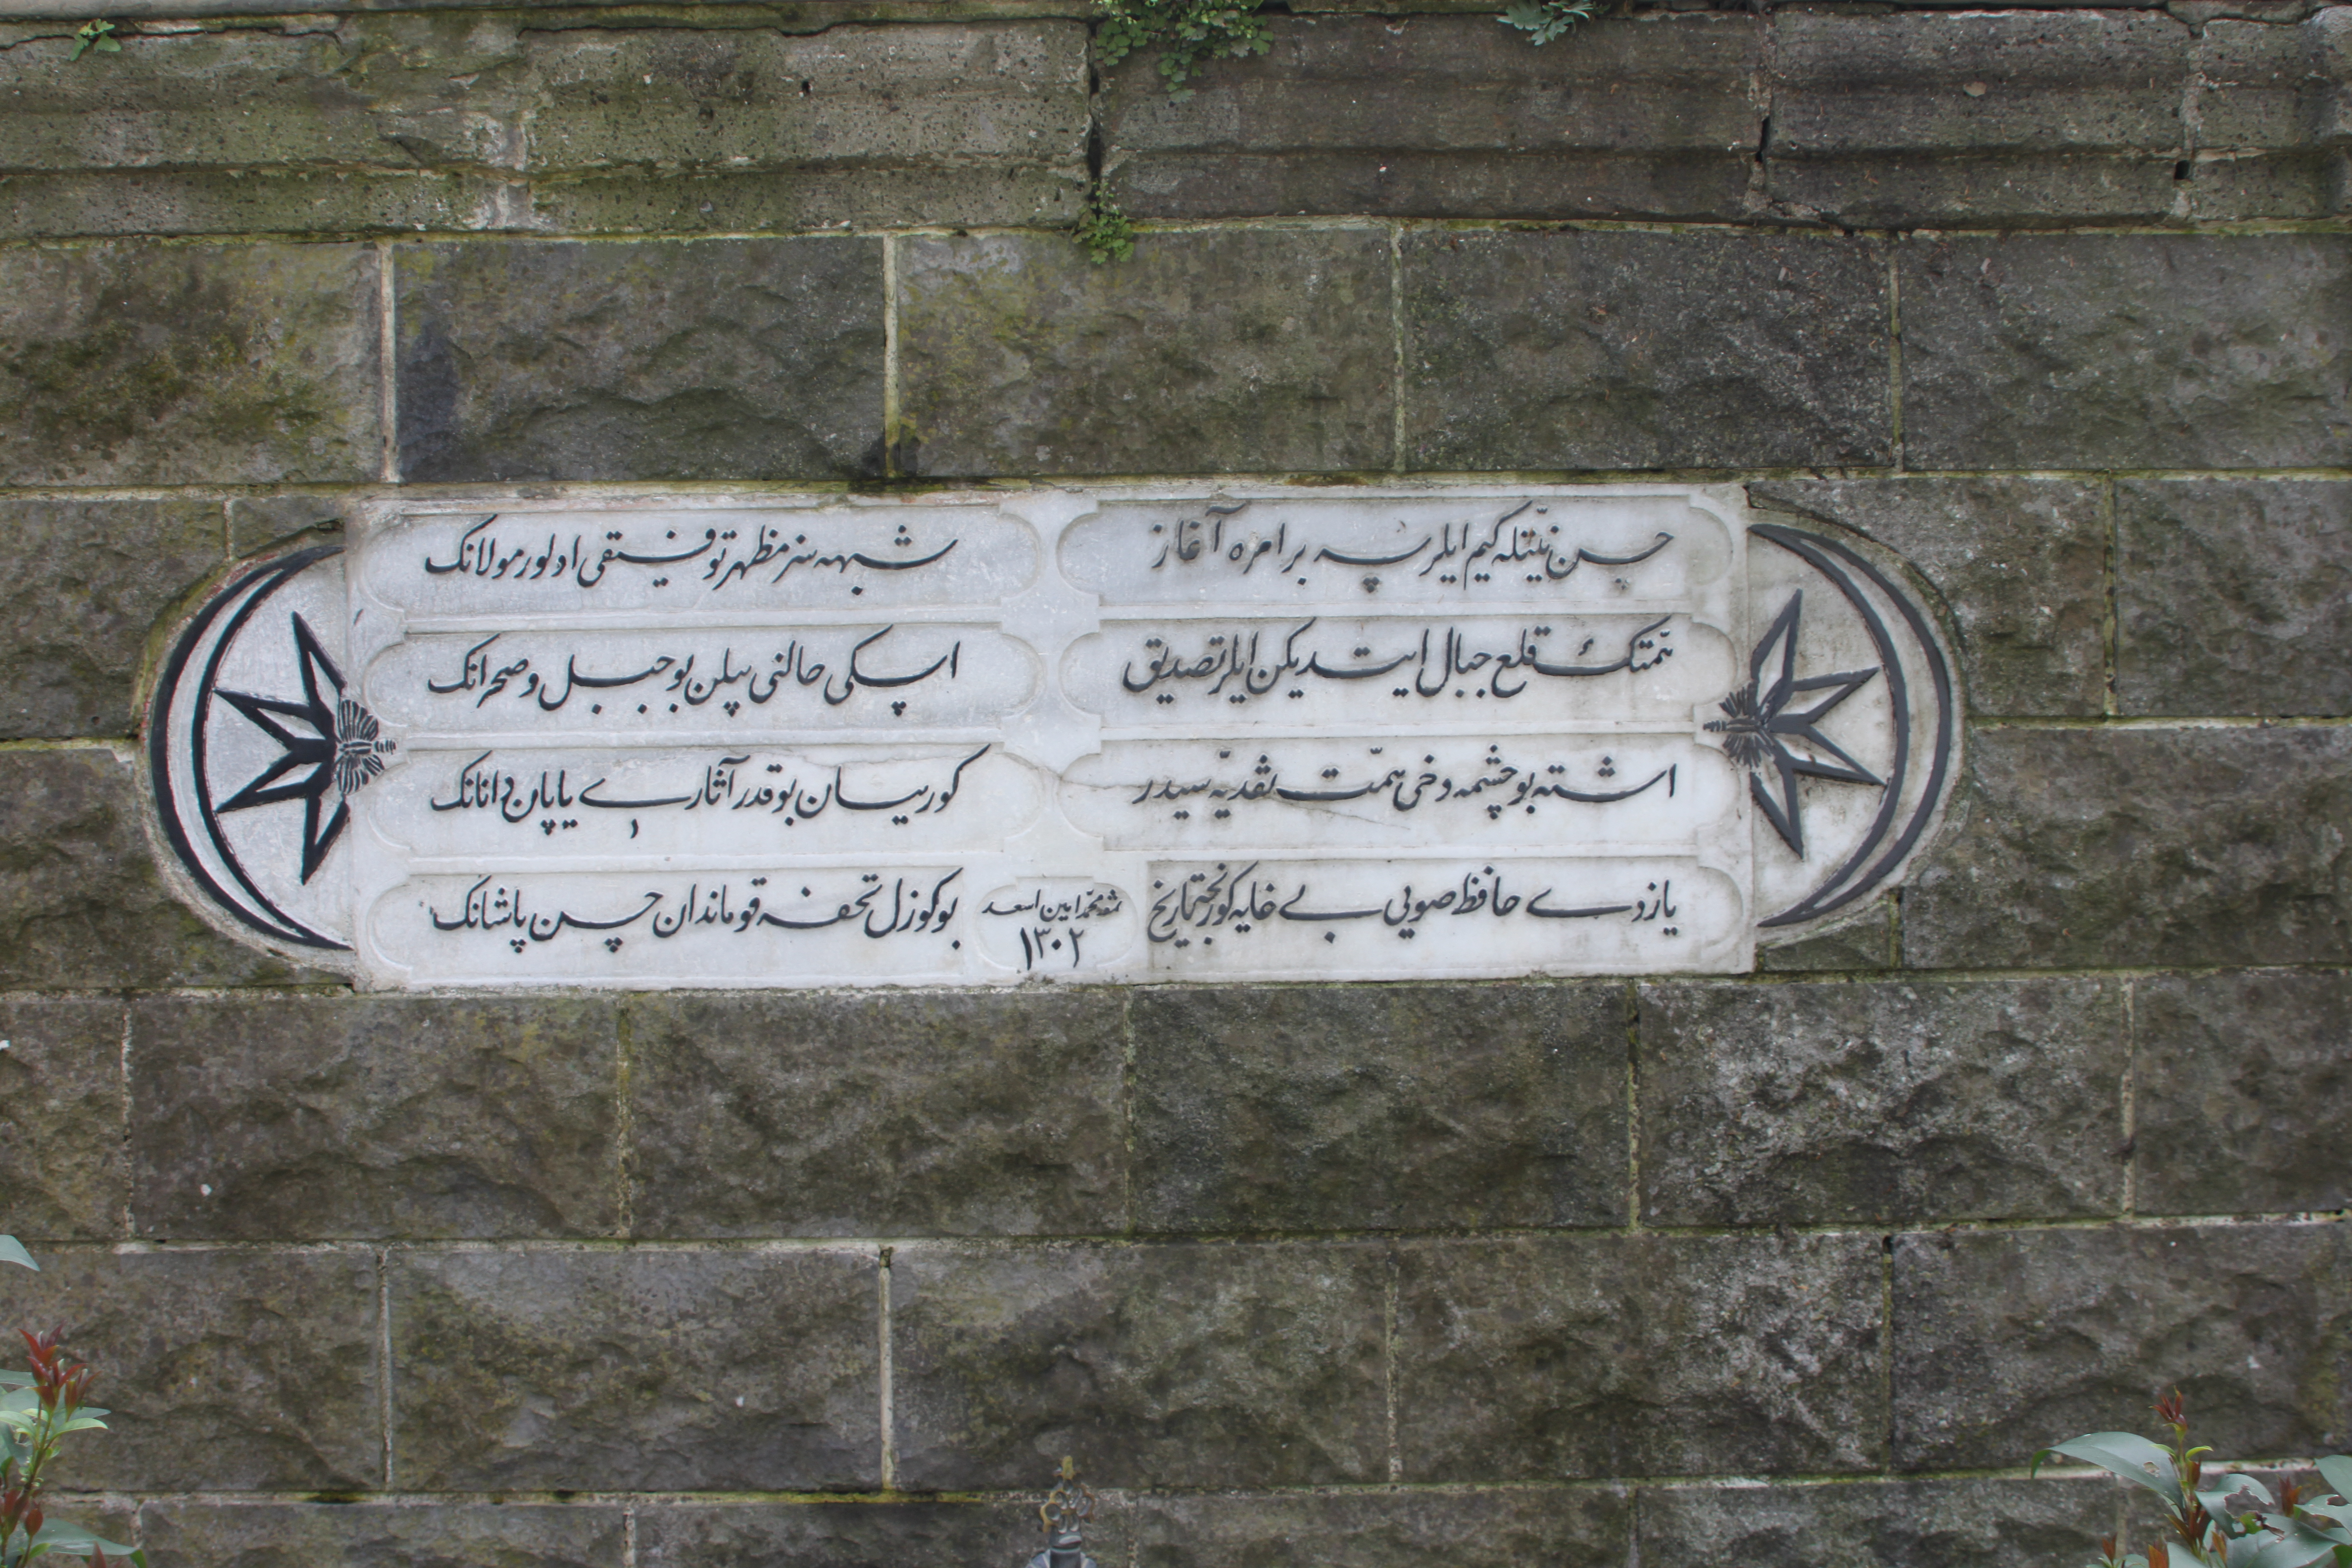 حسن نیّتله کیم ایلرسه بر امره آغاز
شبهه‌سز مظهر توفیقی اولور مولانک
همّتک قلع جبال ایتدیکن ایلر تصدیق
اسکی حالنی بیلن بو جبل و صحرانک
اشته بو چشمه دخی همّت نقدیّه سیدر
کورییان بو قدر آثاری یاپان دانانک
یازدی حافظ صویی بی غایه کورنجه تاریخ
بو کوزل تحفه قوماندان حسن پاشانک
محمد امین اسعد
١٣٠٢